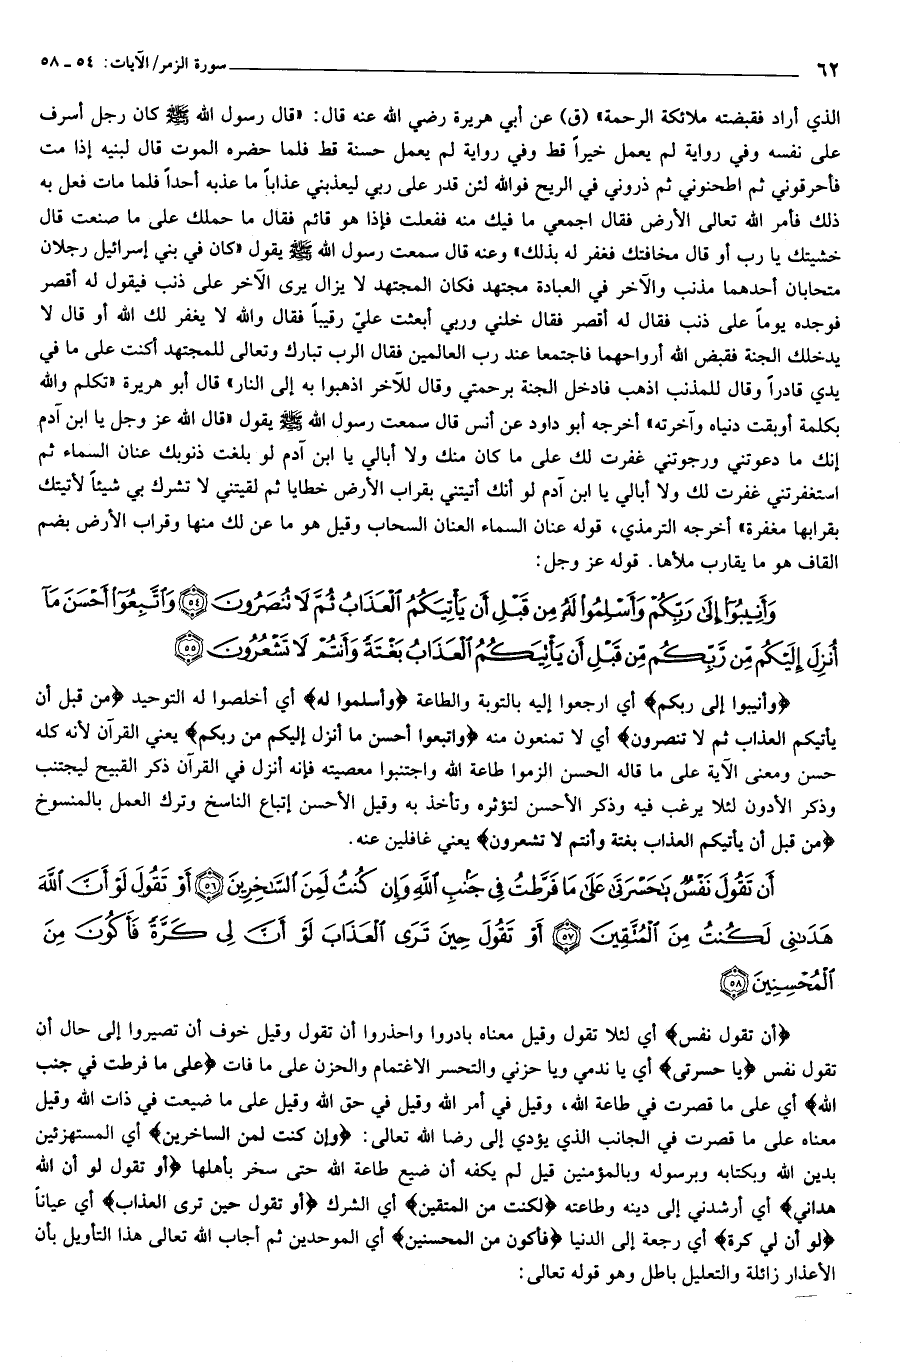 ٦٢ سورة الزمر/ الآيات: ٥٤ ـ ٥٨
الذي أراد فقبضته ملائكة الرحمة» (ق) عن أبي هريرة رضي الله عنه قال: «قال رسول الله ﷺ كان رجل أسرف
على نفسه وفي رواية لم يعمل خيراً قط وفي رواية لم يعمل حسنة قط فلما حضره الموت قال لبنيه إذا مت
فأحرقوني ثم اطحنوني ثم ذروني في الريح فوالله لئن قدر على ربي ليعذبني عذاباً ما عذبه أحداً فلما مات فعل به
ذلك فأمر الله تعالى الأرض فقال اجمعي ما فيك منه ففعلت فإذا هو قائم فقال ما حملك على ما صنعت قال
خشيتك يا رب أو قال مخافتك فغفر له بذلك» وعنه قال سمعت رسول الله ﷺ يقول «كان في بني إسرائيل رجلان
متحابان أحدهما مذنب والآخر في العبادة مجتهد فكان المجتهد لا يزال يرى الآخر على ذنب فيقول له أقصر
فوجده يوماً على ذنب فقال له أقصر فقال خلني وربي أبعثت عليّ رقيباً فقال والله لا يغفر لك الله أو قال لا
يدخلك الجنة فقبض الله أرواحهما فاجتمعا عند رب العالمين فقال الرب تبارك وتعالى للمجتهد أكنت على ما في
يدي قادراً وقال للمذنب اذهب فادخل الجنة برحمتي وقال للآخر اذهبوا به إلى النار» قال أبو هريرة «تكلم والله
بكلمة أوبقت دنياه وآخرته» أخرجه أبو داود عن أنس قال سمعت رسول الله ﷺ يقول «قال الله عز وجل يا ابن آدم
إنك ما دعوتني ورجوتني غفرت لك على ما كان منك ولا أبالي يا ابن آدم لو بلغت ذنوبك عنان السماء ثم
استغفرتني غفرت لك ولا أبالي يا ابن آدم لو أنك أتيتني بقراب الأرض خطايا ثم لقيتني لا تشرك بي شيئاً لأتيتك
بقرابها مغفرة» أخرجه الترمذي، قوله عنان السماء العنان السحاب وقيل هو ما عن لك منها وقراب الأرض بضم
القاف هو ما يقارب ملأها. قوله عز وجل:
وَأَنِيبُوٓا۟ إِلَىٰ رَبِّكُمْ وَأَسْلِمُوا۟ لَهُۥ مِن قَبْلِ أَن يَأْتِيَكُمُ ٱلْعَذَابُ ثُمَّ لَا تُنصَرُونَ ۝٥٤ وَٱتَّبِعُوٓا۟ أَحْسَنَ مَآ
أُنزِلَ إِلَيْكُم مِّن رَّبِّكُم مِّن قَبْلِ أَن يَأْتِيَكُمُ ٱلْعَذَابُ بَغْتَةً وَأَنتُمْ لَا تَشْعُرُونَ ۝٥٥
﴿وأنيبوا إلى ربكم﴾ أي ارجعوا إليه بالتوبة والطاعة ﴿وأسلموا له﴾ أي أخلصوا له التوحيد ﴿من قبل أن
يأتيكم العذاب ثم لا تنصرون﴾ أي لا تمنعون منه ﴿واتبعوا أحسن ما أنزل إليكم من ربكم﴾ يعني القرآن لأنه كله
حسن ومعنى الآية على ما قاله الحسن الزموا طاعة الله واجتنبوا معصيته فإنه أنزل في القرآن ذكر القبيح ليجتنب
وذكر الأدون لئلا يرغب فيه وذكر الأحسن لتؤثره وتأخذ به وقيل الأحسن إتباع الناسخ وترك العمل بالمنسوخ
﴿من قبل أن يأتيكم العذاب بغتة وأنتم لا تشعرون﴾ يعني غافلين عنه.
أَن تَقُولَ نَفْسٌ يَٰحَسْرَتَىٰ عَلَىٰ مَا فَرَّطتُ فِى جَنۢبِ ٱللَّهِ وَإِن كُنتُ لَمِنَ ٱلسَّٰخِرِينَ ۝٥٦ أَوْ تَقُولَ لَوْ أَنَّ ٱللَّهَ
هَدَىٰنِى لَكُنتُ مِنَ ٱلْمُتَّقِينَ ۝٥٧ أَوْ تَقُولَ حِينَ تَرَى ٱلْعَذَابَ لَوْ أَنَّ لِى كَرَّةً فَأَكُونَ مِنَ
ٱلْمُحْسِنِينَ ۝٥٨
﴿أن تقول نفس﴾ أي لئلا تقول وقيل معناه بادروا واحذروا أن تقول وقيل خوف أن تصيروا إلى حال أن
تقول نفس ﴿يا حسرتى﴾ أي يا ندمي ويا حزني والتحسر الاغتمام والحزن على ما فات ﴿على ما فرطت في جنب
الله﴾ أي على ما قصرت في طاعة الله، وقيل في أمر الله وقيل في حق الله وقيل على ما ضيعت في ذات الله وقيل
معناه على ما قصرت في الجانب الذي يؤدي إلى رضا الله تعالى: ﴿وإن كنت لمن الساخرين﴾ أي المستهزئين
بدين الله وبكتابه وبرسوله وبالمؤمنين قيل لم يكفه أن ضيع طاعة الله حتى سخر بأهلها ﴿أو تقول لو أن الله
هداني﴾ أي أرشدني إلى دينه وطاعته ﴿لكنت من المتقين﴾ أي الشرك ﴿أو تقول حين ترى العذاب﴾ أي عياناً
﴿لو أن لي كرة﴾ أي رجعة إلى الدنيا ﴿فأكون من المحسنين﴾ أي الموحدين ثم أجاب الله تعالى هذا التأويل بأن
الأعذار زائلة والتعليل باطل وهو قوله تعالى: